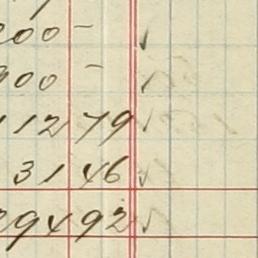 200 – ✓
900 – ✓
112 79 ✓
31 46 ✓
294 92 ✓